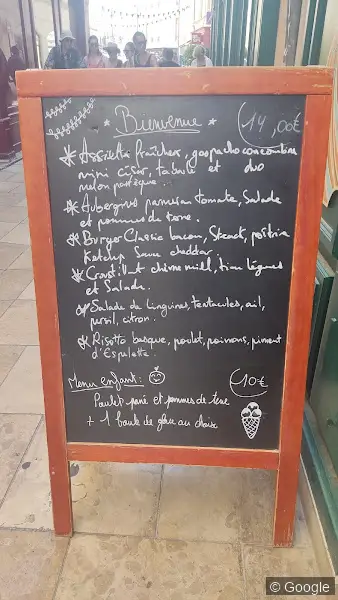 Bienvenue
14,00€
Assiette fraîcheur, gaspacho concombre
mini césar, taboulé et duo
melon pastèque.
Aubergines parmesan tomate, Salade
et pommes de terre.
Burger Classic bacon, Steack, poitrine
Ketchup Sauce cheddar
Croustillant chèvre miel, tian légumes
et Salade.
Salade de Linguines, tentacules, ail,
persil, citron.
Risotto basque, poulet, poivrons, piment
d'Espelette.
Menu enfant:
10€
Poulet pané et pommes de terre
+ 1 boule de glace au choix
© Google